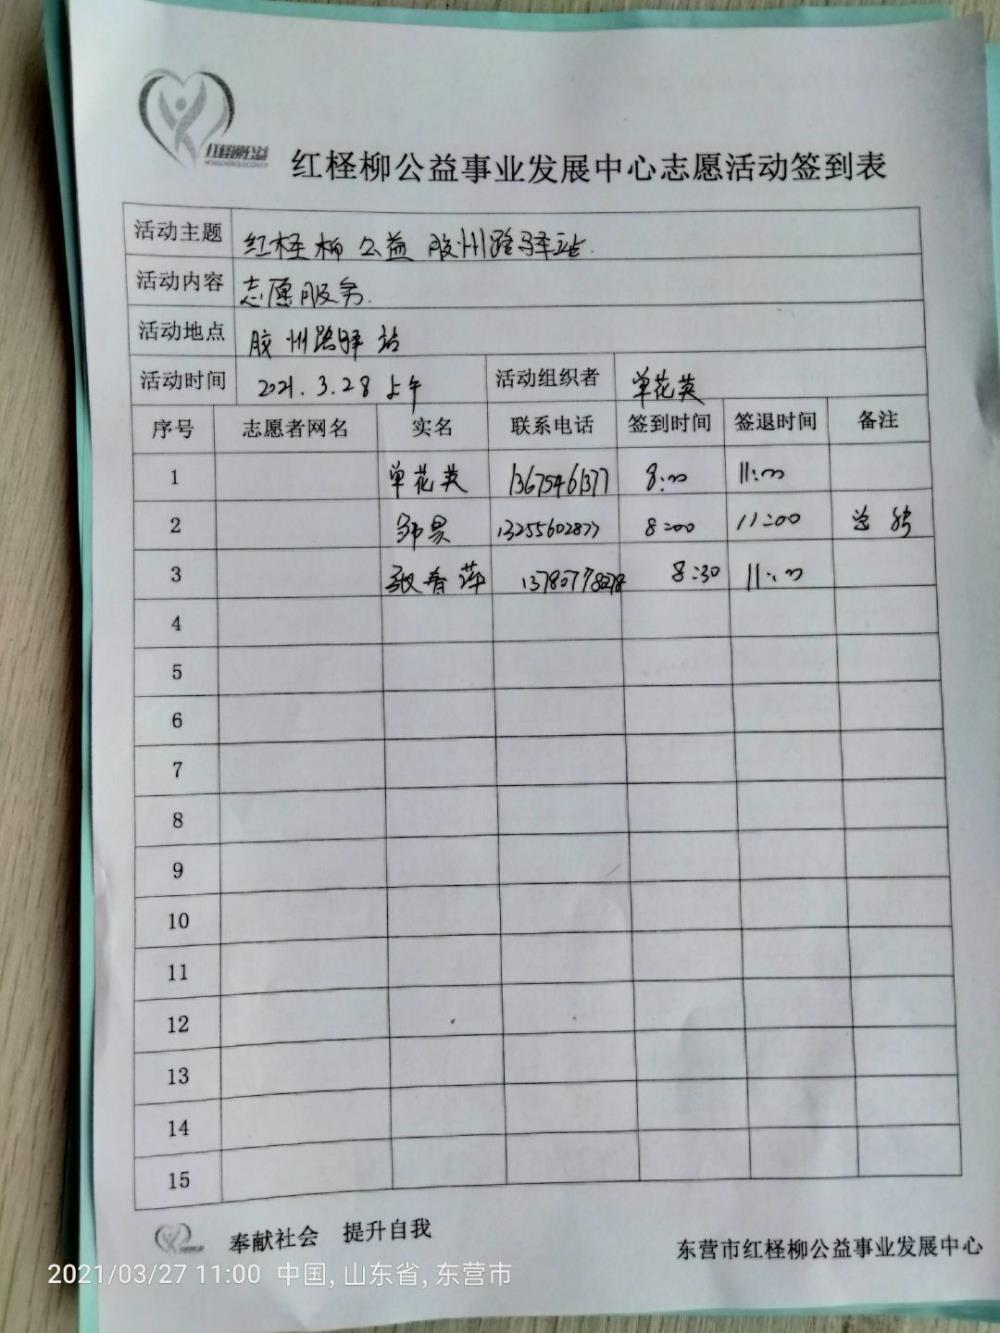 红柽柳公益
红柽柳公益事业发展中心志愿活动签到表
活动主题 红柽柳公益胶州路驿站.
活动内容 志愿服务.
活动地点 胶州路驿站
活动时间 2021.3.28上午 活动组织者 单花英
序号 志愿者网名 实名 联系电话 签到时间 签退时间 备注
1 单花英 13675461377 8:00 11:00
2 8:00 11:00
3 张春萍 8:30 11:00
4
5
6
7
8
9
10
11
12
13
14
15
奉献社会 提升自我
东营市红柽柳公益事业发展中心
2021/03/27 11:00 中国, 山东省, 东营市